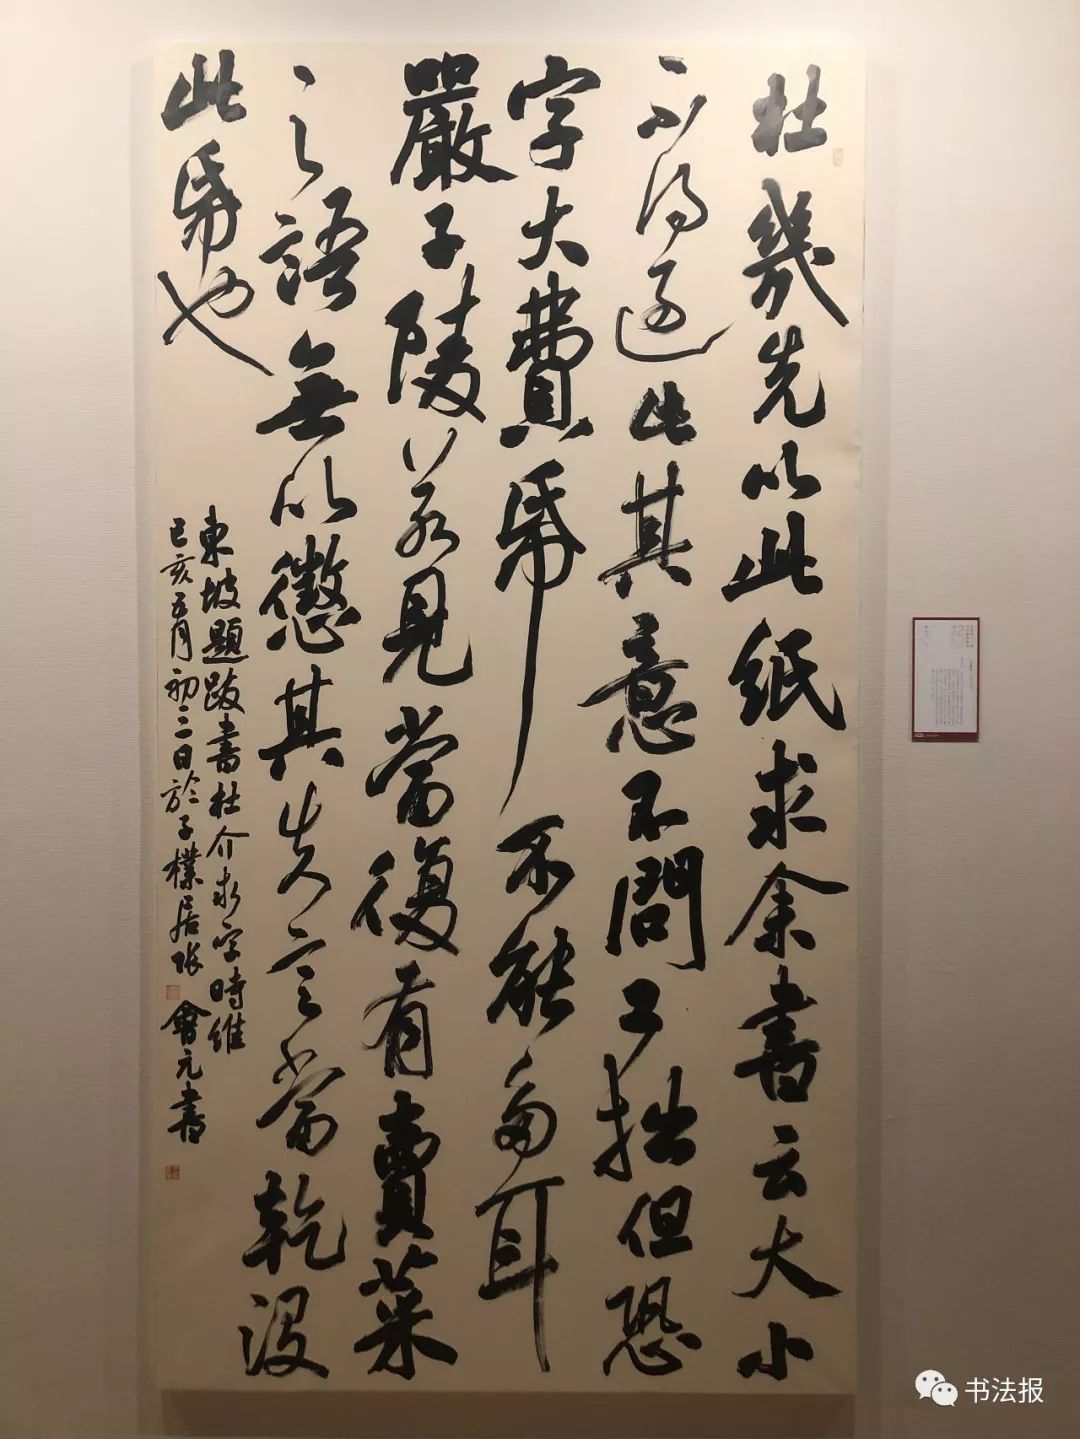 杜幾先以此紙求余書云大小
不得過此其意不問工拙但恐
字大費帋不能多耳
嚴子陵若見當復有賣菜
之語無以懲其失言當乾没
此帋也
東坡題跋書杜介求字時維
己亥五月初三日於子樸居張會元書
书法报